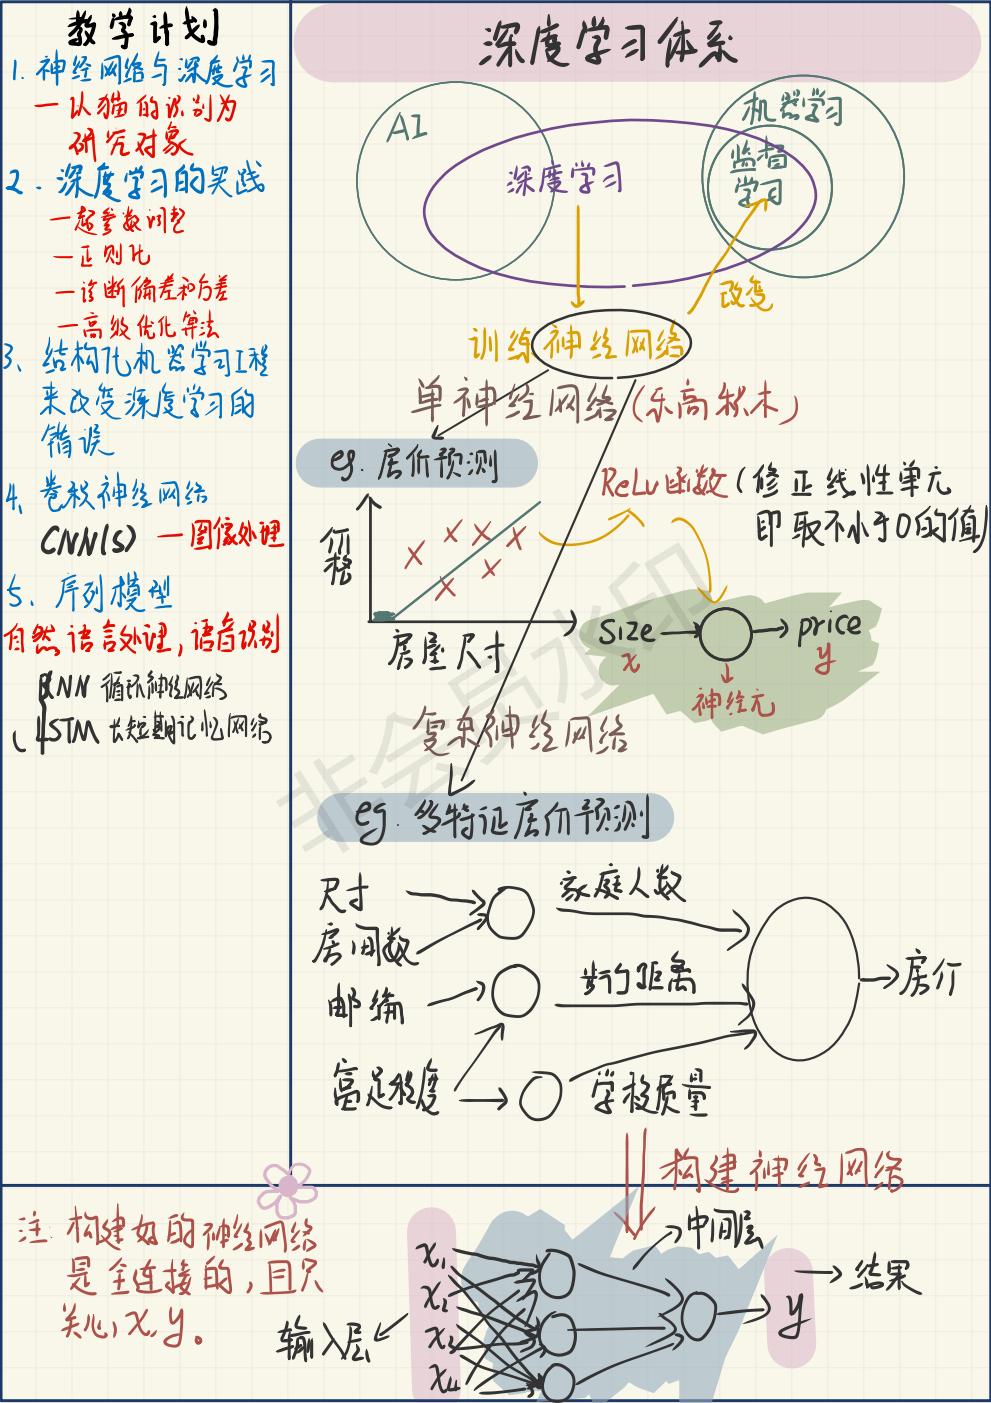 教学计划
1.神经网络与深度学习
一以猫的识别为
研究对象
2.深度学习的实践
一超参数调整
一正则化
一诊断偏差和方差
一高级优化算法
3、结构化机器学习工程
来改变深度学习的
错误
4、卷积神经网络
CNN(s) 一图像处理
5、序列模型
自然语言处理,语音识别
RNN 循环神经网络
LSTM 长短期记忆网络
深度学习体系
AI
深度学习
机器学习
监督
学习
改变
训练神经网络
单神经网络(乐高积木)
eg. 房价预测
价格
房屋尺寸
ReLu函数(修正线性单元
即取不小于0的值)
size
x
price
y
神经元
复杂神经网络
eg. 多特征房价预测
尺寸
房间数
邮编
富足程度
家庭人数
步行距离
学校质量
房价
构建神经网络
注:构建好的神经网络
是全连接的,且只
关心,x,y。
输入层
x1
x2
x3
x4
中间层
y
结果
非会员水印